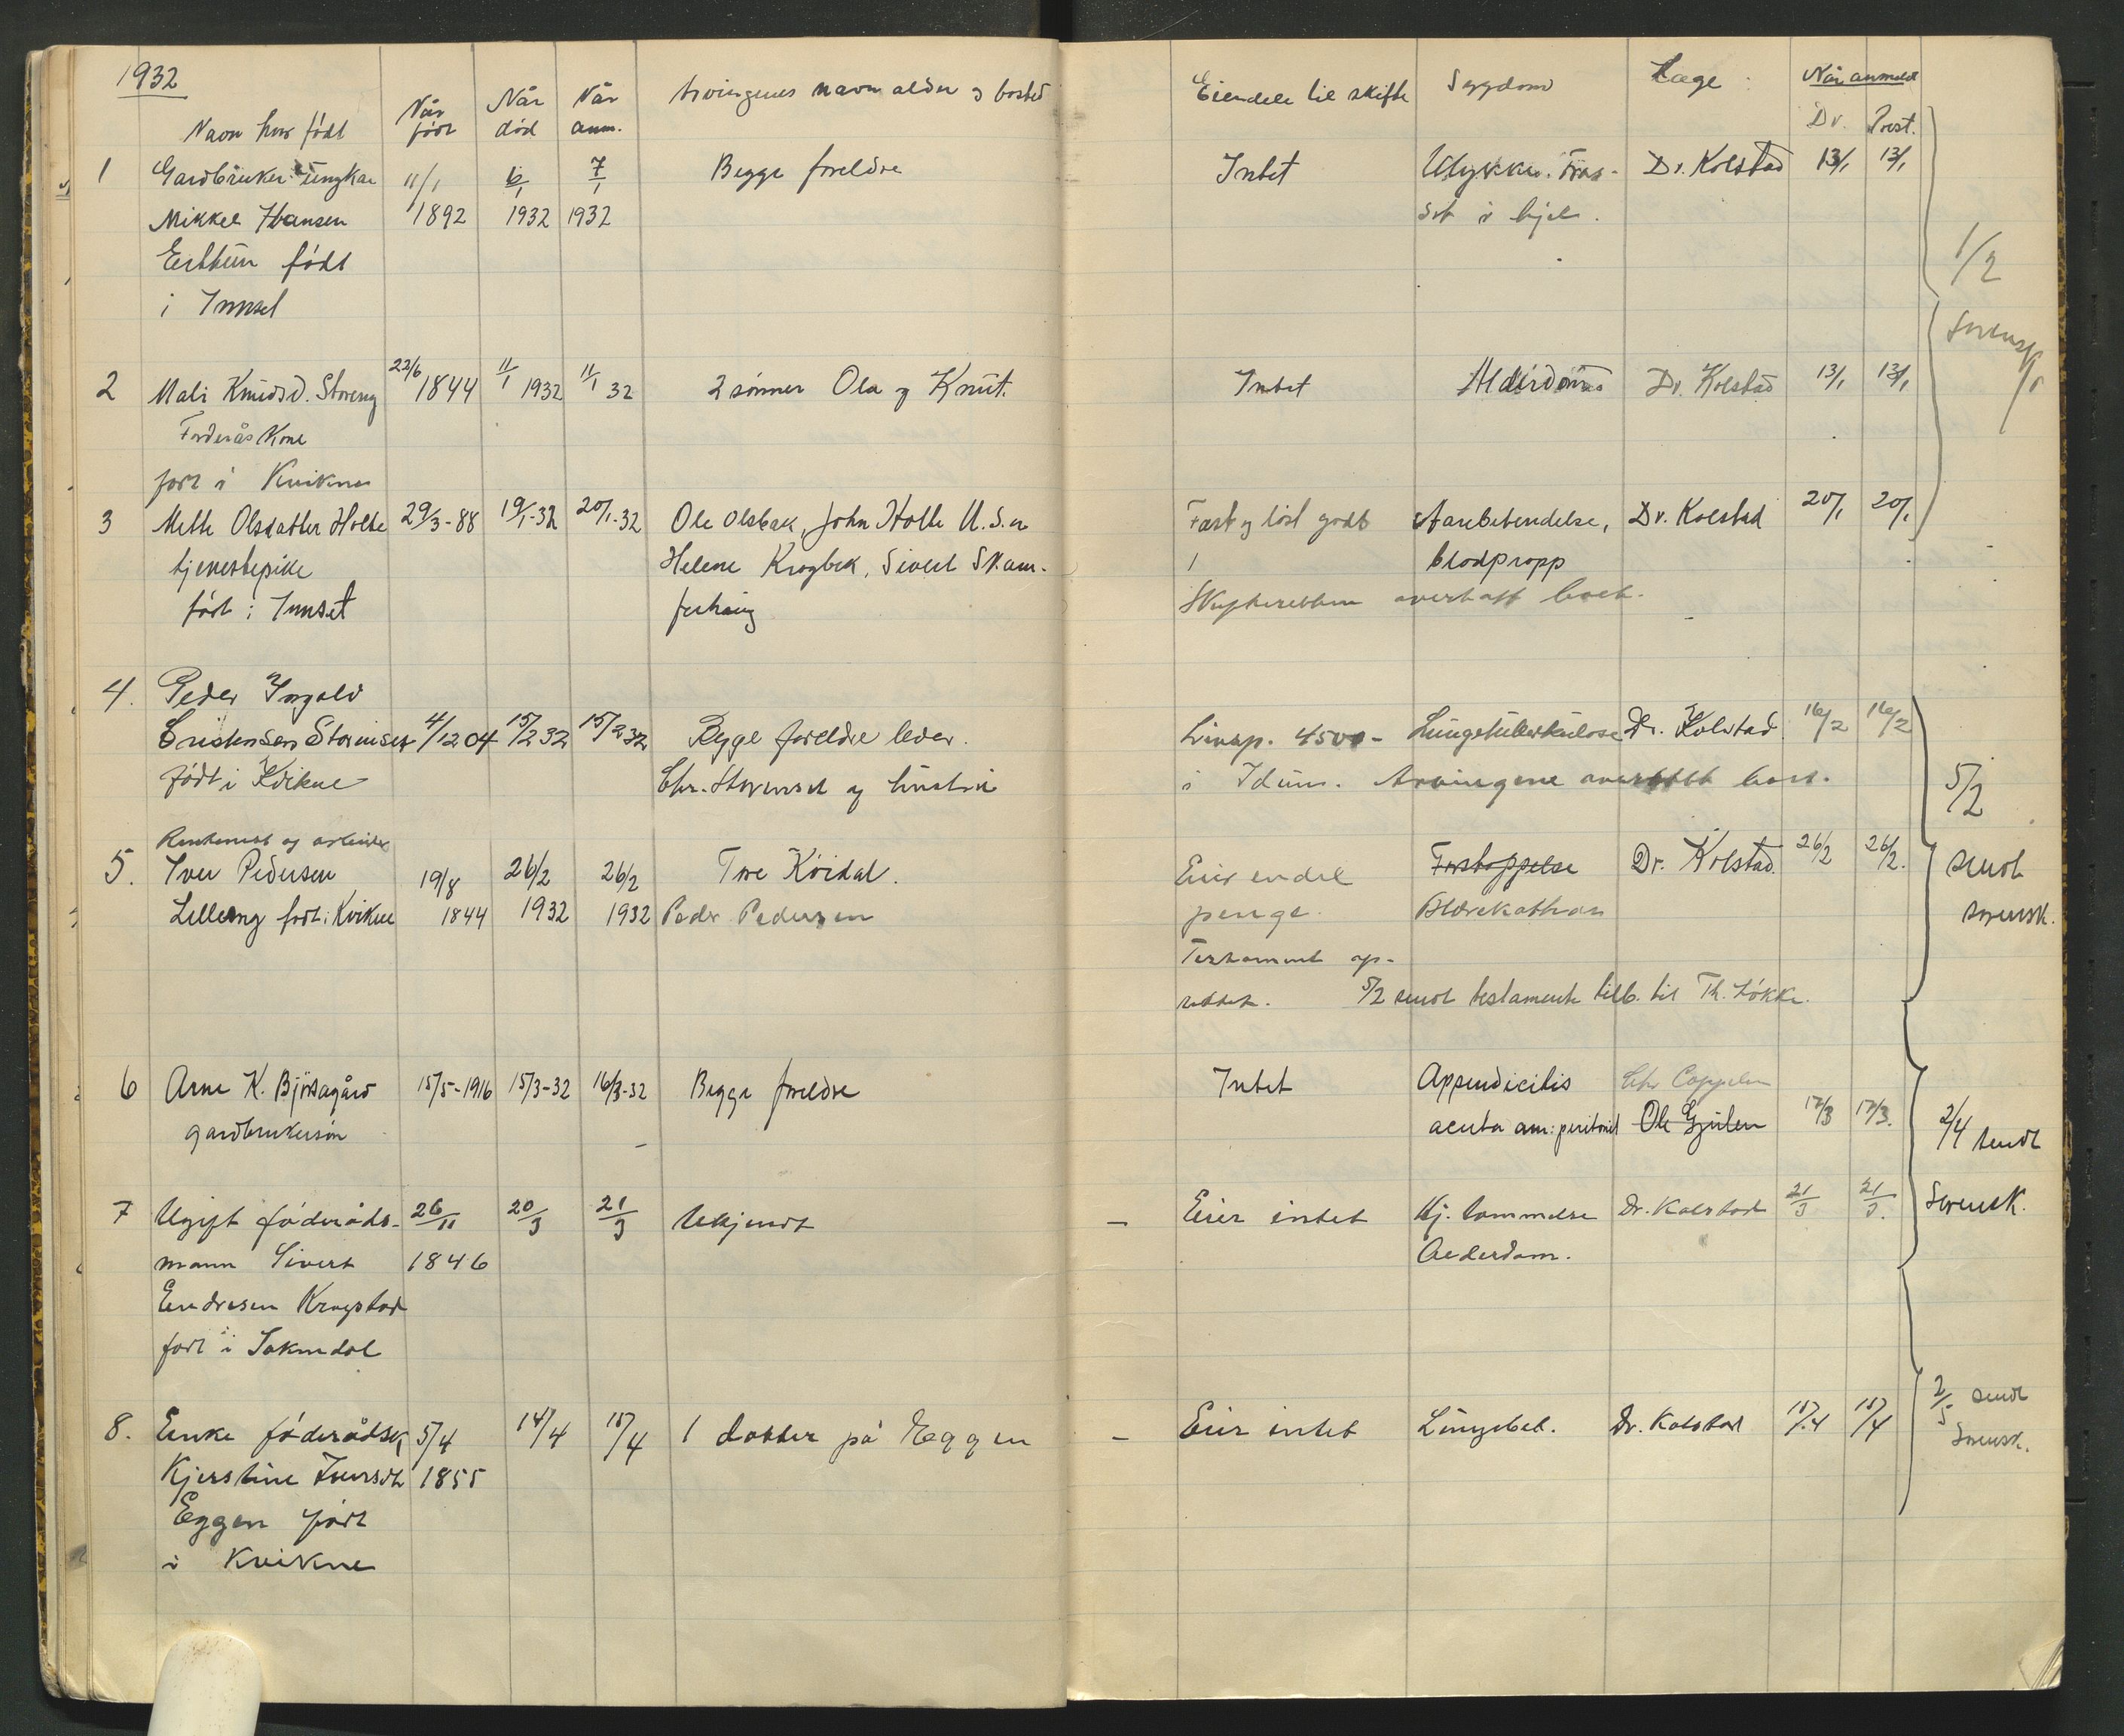 1932
Navn hvor født
Når født
Når død
Når anm.
Arvingenes navn alder og bosted
Eiendele til skifte
Sygdom
Læge
Når anmeldt
Dr. Prest.
1 Gardbruker Ungkar 11/1 6/1 7/1 Begge foreldre Intet Ulykke. Dr. Kolstad 13/1 13/1
Mikkel Hansen 1892 1932 1932 i hjel.
født
i Innset
1/2
Sorensk
2 Mali Knudsd. Storeng 22/6 1844 11/1 1932 11/1 32 2 sønner Ola og Knut. Intet Alderdom Dr. Kolstad 13/1 13/1
Kone
født i Kvikne
3 Mette Olsdatter Holte 29/3-88 19/1-32 20/1-32 Ole Olsbak, John Holte U.S.A Fast og løst gods Aarebetendelse, Dr. Kolstad 20/1 20/1
tjenestepike Helene Krogbek, Sivert Skam- blodpropp
født i Innset overtatt boet.
4. Peder Ingolv
Cristensen Storinset 4/12 04 15/2 32 15/2 32 Begge foreldre lever. Livsp. 4500- Lungetuberkulose Dr. Kolstad 16/2 16/2
født i Kvikne Chr. Storinset og hustru i Idun. Arvingene overtatt boet.
5/2
sendt
sorensk.
og arbeider
5. Iver Pedersen 19/8 26/2 26/2 Tore Koidal. Eier endel Forstoppelse Dr. Kolstad 26/2 26/2.
Lilleeng født i Kvikne 1844 1932 1932 Peder Pedersen penge. Blærekatharr
Testament op-
rettet. 5/2 sendt testamente tilb. til Th. Løkke.
6 Arne K. Bjørsagård 15/5-1916 15/3-32 16/3-32 Begge foreldre Intet Appendicitis Chr Coppelen
gardbrukersøn acuta am: peritonit Ole Gjulem 17/3 17/3.
2/4 sendt
Sorensk.
7 Ugift føderåds- 26/11 20/3 21/3 Ukjendt - Eier intet Hj. lammelse Dr. Kolstad 21/3 21/3.
mann Sivert 1846 Alderdom.
Endresen Krogstad
født i Soknedal
8. Enke føderådsk. 5/4 14/4 15/4 1 datter på Eggen - Eier intet Lungebet. Dr. Kolstad 15/4 15/4
Kjerstine Iversdt 1855
Eggen født
i Kvikne
2/5 sendt
Sorensk.